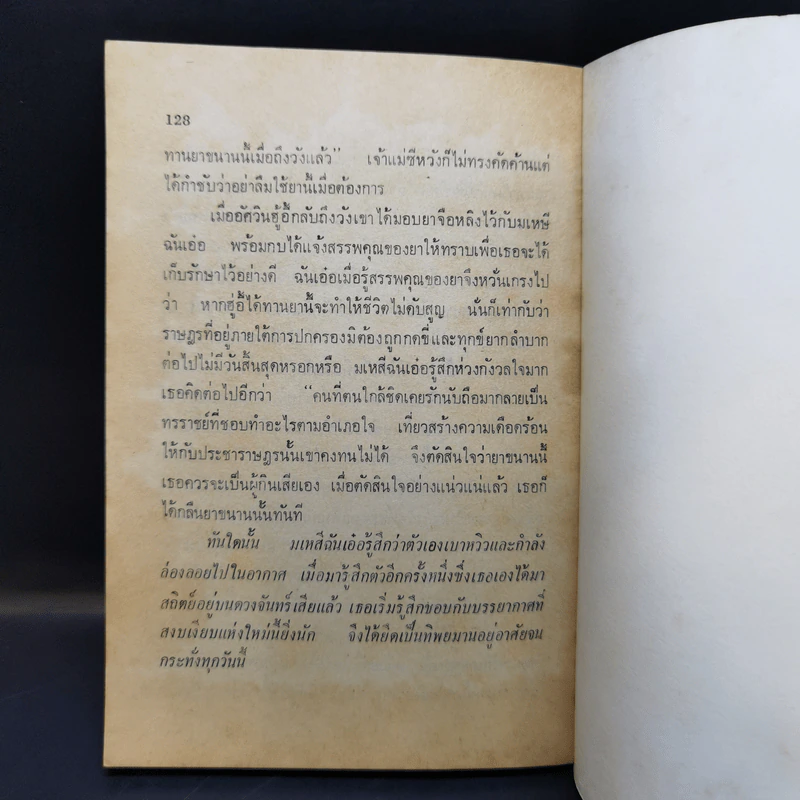 128
ทานยาขนานนี้เมื่อถึงวังแล้ว" เจ้าแม่ซีหวังก็ไม่ทรงคัดค้านแต่
ได้กำชับว่าอย่าลืมใช้ยานี้เมื่อต้องการ
เมื่ออัศวินฮู่อี้กลับถึงวังเขาได้มอบยาจือหลิงไว้กับมเหษี
ฉันเอ๋อ พร้อมกบได้แจ้งสรรพคุณของยาให้ทราบเพื่อเธอจะได้
เก็บรักษาไว้อย่างดี ฉันเอ๋อเมื่อรู้สรรพคุณของยาจึงหวั่นเกรงไป
ว่า หากฮู่อี้ได้ทานยานี้จะทำให้ชีวิตไม่ดับสูญ นั่นก็เท่ากับว่า
ราษฎรที่อยู่ภายใต้การปกครองมิต้องถูกกดขี่และทุกข์ยากลำบาก
ต่อไปไม่มีวันสิ้นสุดหรอกหรือ มเหสีฉันเอ๋อรู้สึกห่วงกังวลใจมาก
เธอคิดต่อไปอีกว่า "คนที่ตนใกล้ชิดเคยรักนับถือมากลายเป็น
ทรราชย์ที่ชอบทำอะไรตามอำเภอใจ เที่ยวสร้างความเดือดร้อน
ให้กับประชาราษฎรนั้นเขาคงทนไม่ได้ จึงตัดสินใจว่ายาขนานนี้
เธอควรจะเป็นผู้กินเสียเอง เมื่อตัดสินใจอย่างแน่วแน่แล้ว เธอก็
ได้กลืนยาขนานนั้นทันที
ทันใดนั้น มเหสีฉันเอ๋อรู้สึกว่าตัวเองเบาหวิวและกำลัง
ล่องลอยไปในอากาศ เมื่อมารู้สึกตัวอีกครั้งหนึ่งซึ่งเธอเองได้มา
สถิตย์อยู่บนดวงจันทร์เสียแล้ว เธอเริ่มรู้สึกชอบกับบรรยากาศที่
สงบเงียบแห่งใหม่นี้ยิ่งนัก จึงได้ยึดเป็นทิพยมานอยู่อาศัยจน
กระทั่งทุกวันนี้